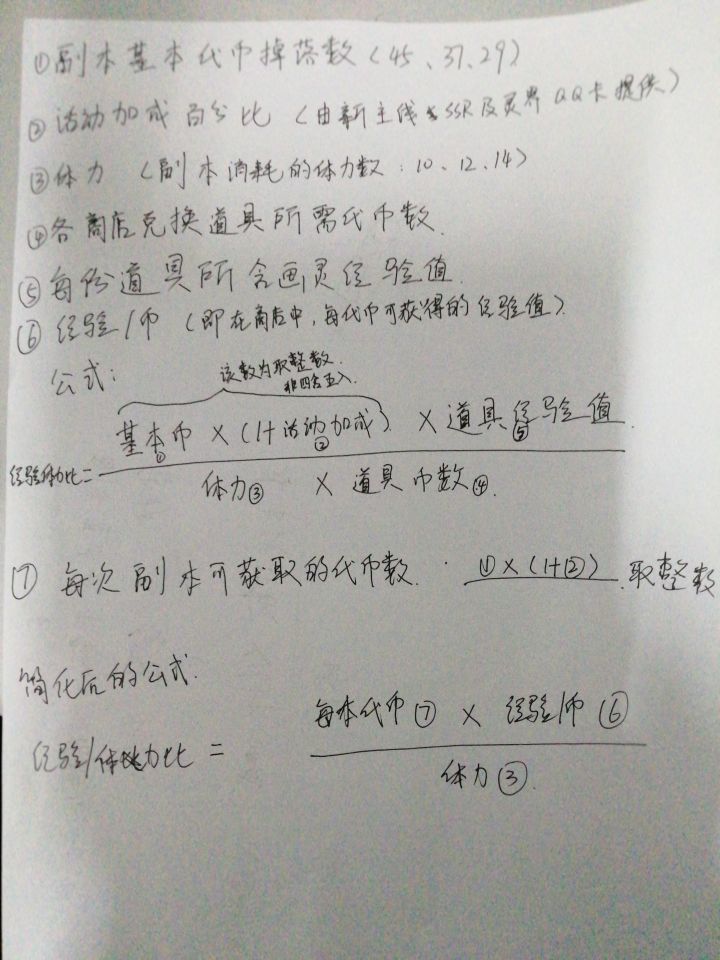 ①副本基本代币掉落数(45、37、29)
②活动加成百分比(由新主线SSR及灵界QQ卡提供)
③体力(副本消耗的体力数:10、12、14)
④各商店兑换道具所需代币数.
⑤每份道具所含画灵经验值.
⑥经验/币(即在商店中,每代币可获得的经验值).
公式:
该数为取整数.
非四舍五入.
基本币×(1+活动加成)×道具经验值.
① ② ⑤
经验体力比=
体力③ × 道具币数④.
⑦每次副本可获取的代币数. ①×(1+②).取整数
简化后的公式.
每本代币⑦ × 经验/币⑥
经验/体力比 =
体力③.